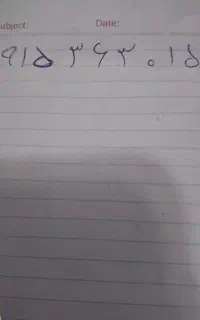 ubject: Date:
۹۱۵ ۳۶۳۰۱۵